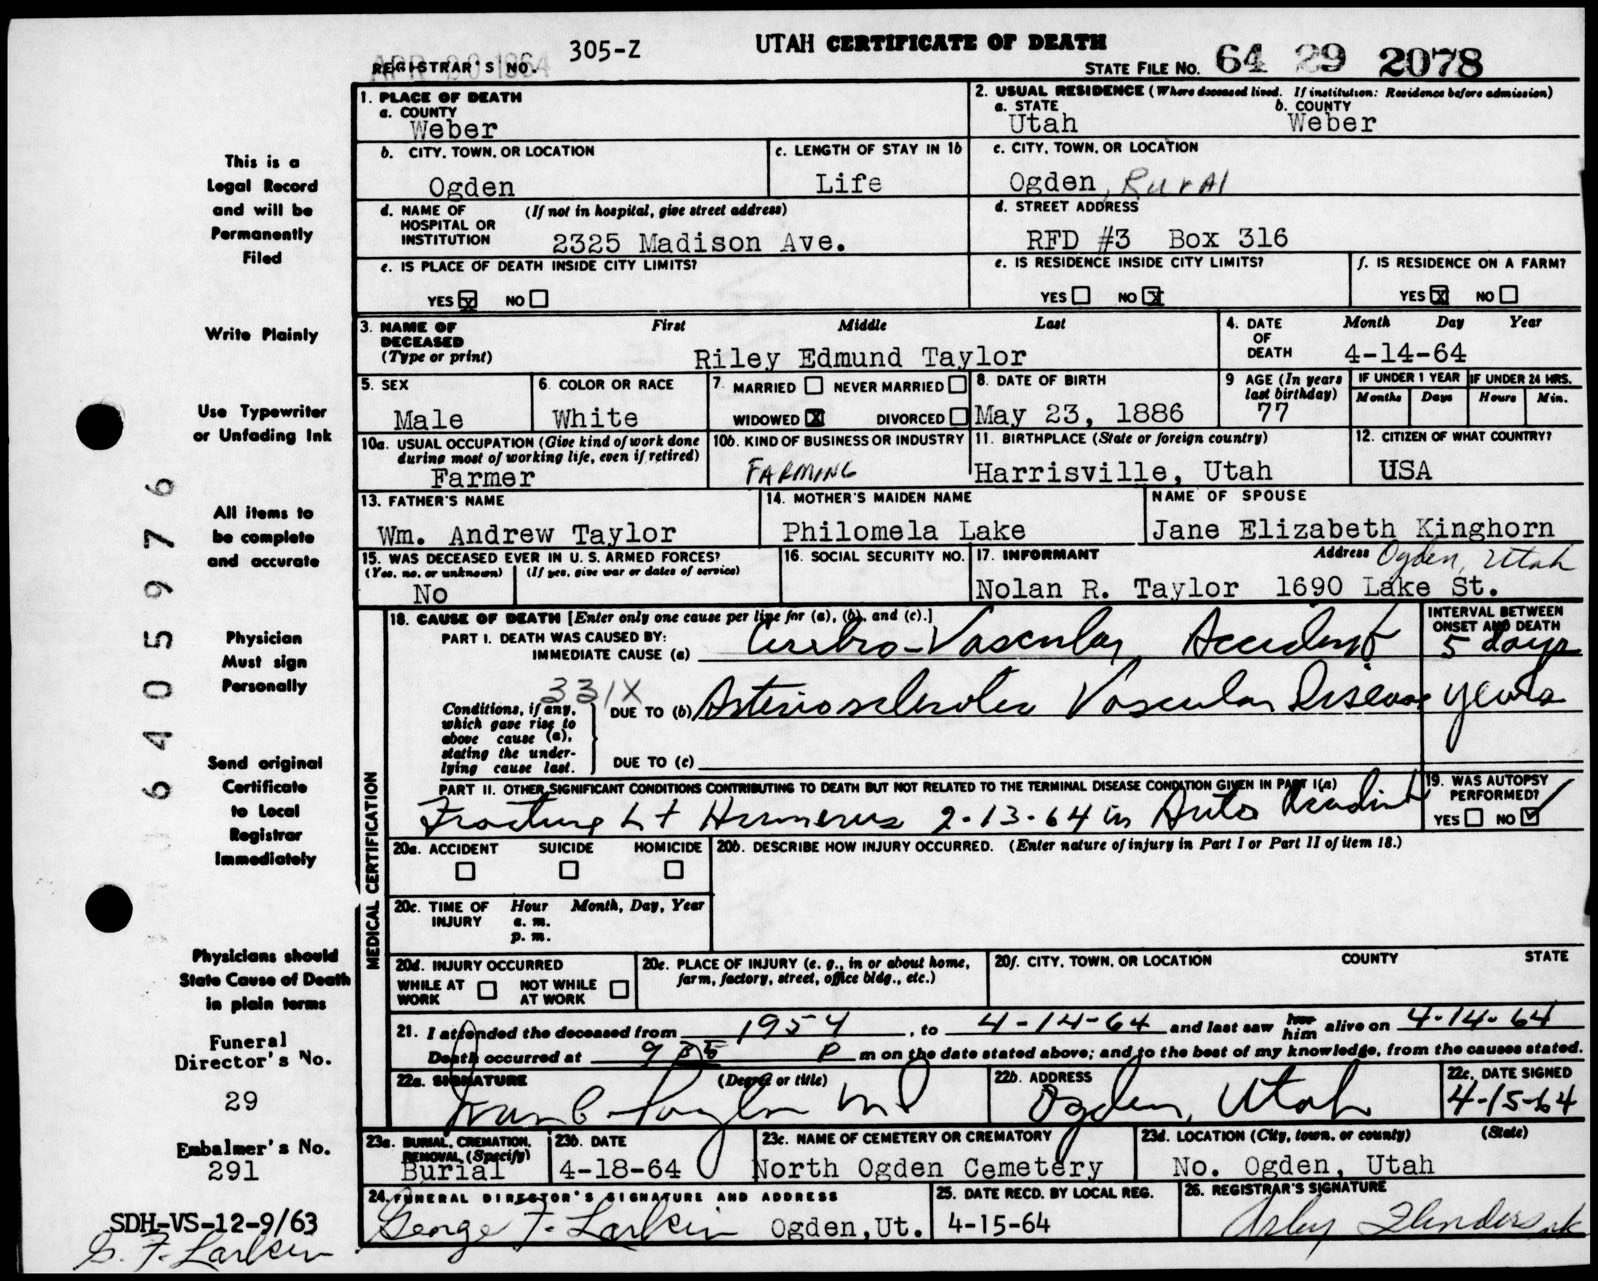 305-Z
UTAH CERTIFICATE OF DEATH
APR 20 1964
REGISTRAR'S NO.
STATE FILE NO. 64 29 2078
1. PLACE OF DEATH
a. COUNTY
Weber
2. USUAL RESIDENCE (Where deceased lived. If institution: Residence before admission)
a. STATE b. COUNTY
Utah Weber
b. CITY, TOWN, OR LOCATION
Ogden
c. LENGTH OF STAY IN 1b
Life
c. CITY, TOWN, OR LOCATION
Ogden, Rural
d. NAME OF HOSPITAL OR INSTITUTION (If not in hospital, give street address)
2325 Madison Ave.
d. STREET ADDRESS
RFD #3 Box 316
e. IS PLACE OF DEATH INSIDE CITY LIMITS?
YES X NO
e. IS RESIDENCE INSIDE CITY LIMITS?
YES NO X
f. IS RESIDENCE ON A FARM?
YES X NO
3. NAME OF DECEASED (Type or print)
First Middle Last
Riley Edmund Taylor
4. DATE OF DEATH
Month Day Year
4-14-64
5. SEX
Male
6. COLOR OR RACE
White
7. MARRIED NEVER MARRIED
WIDOWED X DIVORCED
8. DATE OF BIRTH
May 23, 1886
9 AGE (In years last birthday)
77
IF UNDER 1 YEAR
Months Days
IF UNDER 24 HRS.
Hours Min.
10a. USUAL OCCUPATION (Give kind of work done during most of working life, even if retired)
Farmer
10b. KIND OF BUSINESS OR INDUSTRY
FARMING
11. BIRTHPLACE (State or foreign country)
Harrisville, Utah
12. CITIZEN OF WHAT COUNTRY?
USA
13. FATHER'S NAME
Wm. Andrew Taylor
14. MOTHER'S MAIDEN NAME
Philomela Lake
NAME OF SPOUSE
Jane Elizabeth Kinghorn
15. WAS DECEASED EVER IN U. S. ARMED FORCES?
(Yes, no, or unknown) (If yes, give war or dates of service)
No
16. SOCIAL SECURITY NO.
17. INFORMANT Address Ogden, Utah
Nolan R. Taylor 1690 Lake St.
MEDICAL CERTIFICATION
18. CAUSE OF DEATH [Enter only one cause per line for (a), (b), and (c).]
PART I. DEATH WAS CAUSED BY:
IMMEDIATE CAUSE (a) Cerebro-Vascular Accident
INTERVAL BETWEEN ONSET AND DEATH
5 days
331X
Conditions, if any, which gave rise to above cause (a), stating the underlying cause last.
DUE TO (b) Arteriosclerotic Vascular Disease years
DUE TO (c)
PART II. OTHER SIGNIFICANT CONDITIONS CONTRIBUTING TO DEATH BUT NOT RELATED TO THE TERMINAL DISEASE CONDITION GIVEN IN PART I(a)
Fracture Lt Humerus 2-13-64 in Auto Accident
19. WAS AUTOPSY PERFORMED?
YES NO ✓
20a. ACCIDENT SUICIDE HOMICIDE
20b. DESCRIBE HOW INJURY OCCURRED. (Enter nature of injury in Part I or Part II of item 18.)
20c. TIME OF INJURY Hour Month, Day, Year
a. m.
p. m.
20d. INJURY OCCURRED
WHILE AT WORK NOT WHILE AT WORK
20e. PLACE OF INJURY (e. g., in or about home, farm, factory, street, office bldg., etc.)
20f. CITY, TOWN, OR LOCATION COUNTY STATE
21. I attended the deceased from 1954, to 4-14-64 and last saw her him alive on 4-14-64
Death occurred at 9 55 P m on the date stated above; and to the best of my knowledge, from the causes stated.
22a. SIGNATURE (Degree or title)
Taylor MD
22b. ADDRESS
Ogden, Utah
22c. DATE SIGNED
4-15-64
23a. BURIAL, CREMATION, REMOVAL, (Specify)
Burial
23b. DATE
4-18-64
23c. NAME OF CEMETERY OR CREMATORY
North Ogden Cemetery
23d. LOCATION (City, town, or county) (State)
No. Ogden, Utah
24. FUNERAL DIRECTOR'S SIGNATURE AND ADDRESS
George F. Larkin Ogden, Ut.
25. DATE RECD. BY LOCAL REG.
4-15-64
26. REGISTRAR'S SIGNATURE
Flinders
This is a
Legal Record
and will be
Permanently
Filed
Write Plainly
Use Typewriter
or Unfading Ink
All items to
be complete
and accurate
Physician
Must sign
Personally
Send original
Certificate
to Local
Registrar
Immediately
Physicians should
State Cause of Death
in plain terms
Funeral
Director's No.
29
Embalmer's No.
291
SDH-VS-12-9/63
G. F. Larkin
6405976